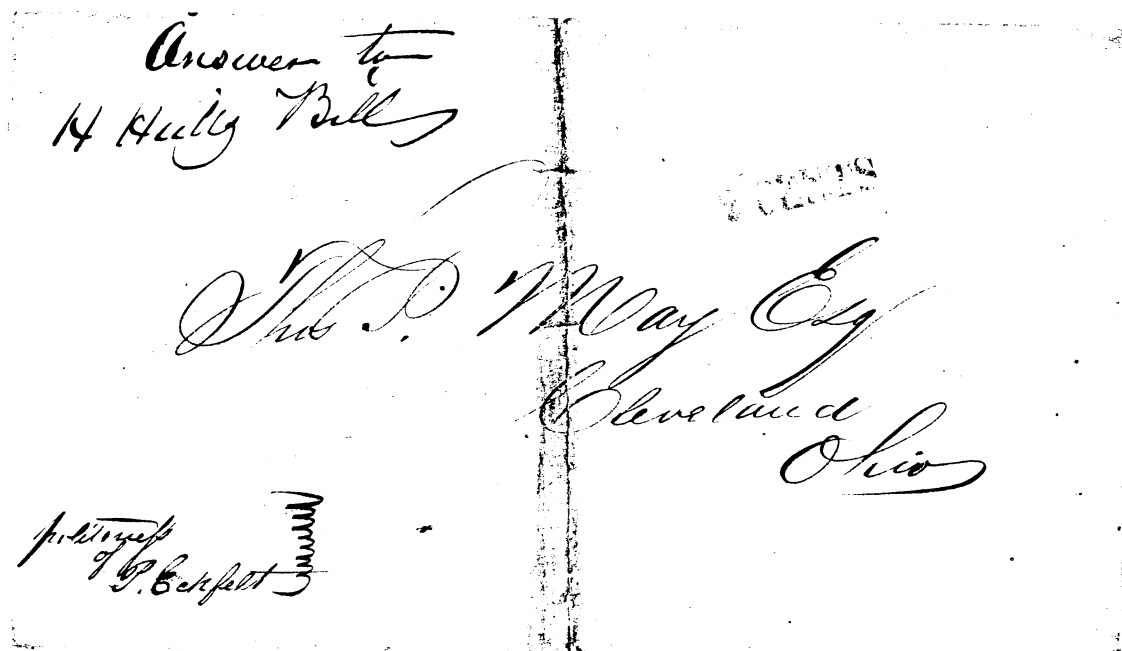 Answer to
H Hills Bill
CENTS
Thos P. May Esq
Cleveland
Ohio
politeness
of
P. Eckfelt